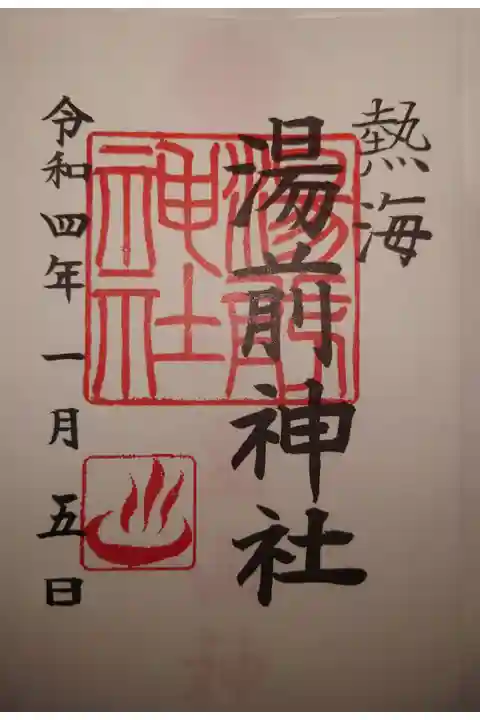 熱海
湯前神社
湯前
神社
令和四年一月五日